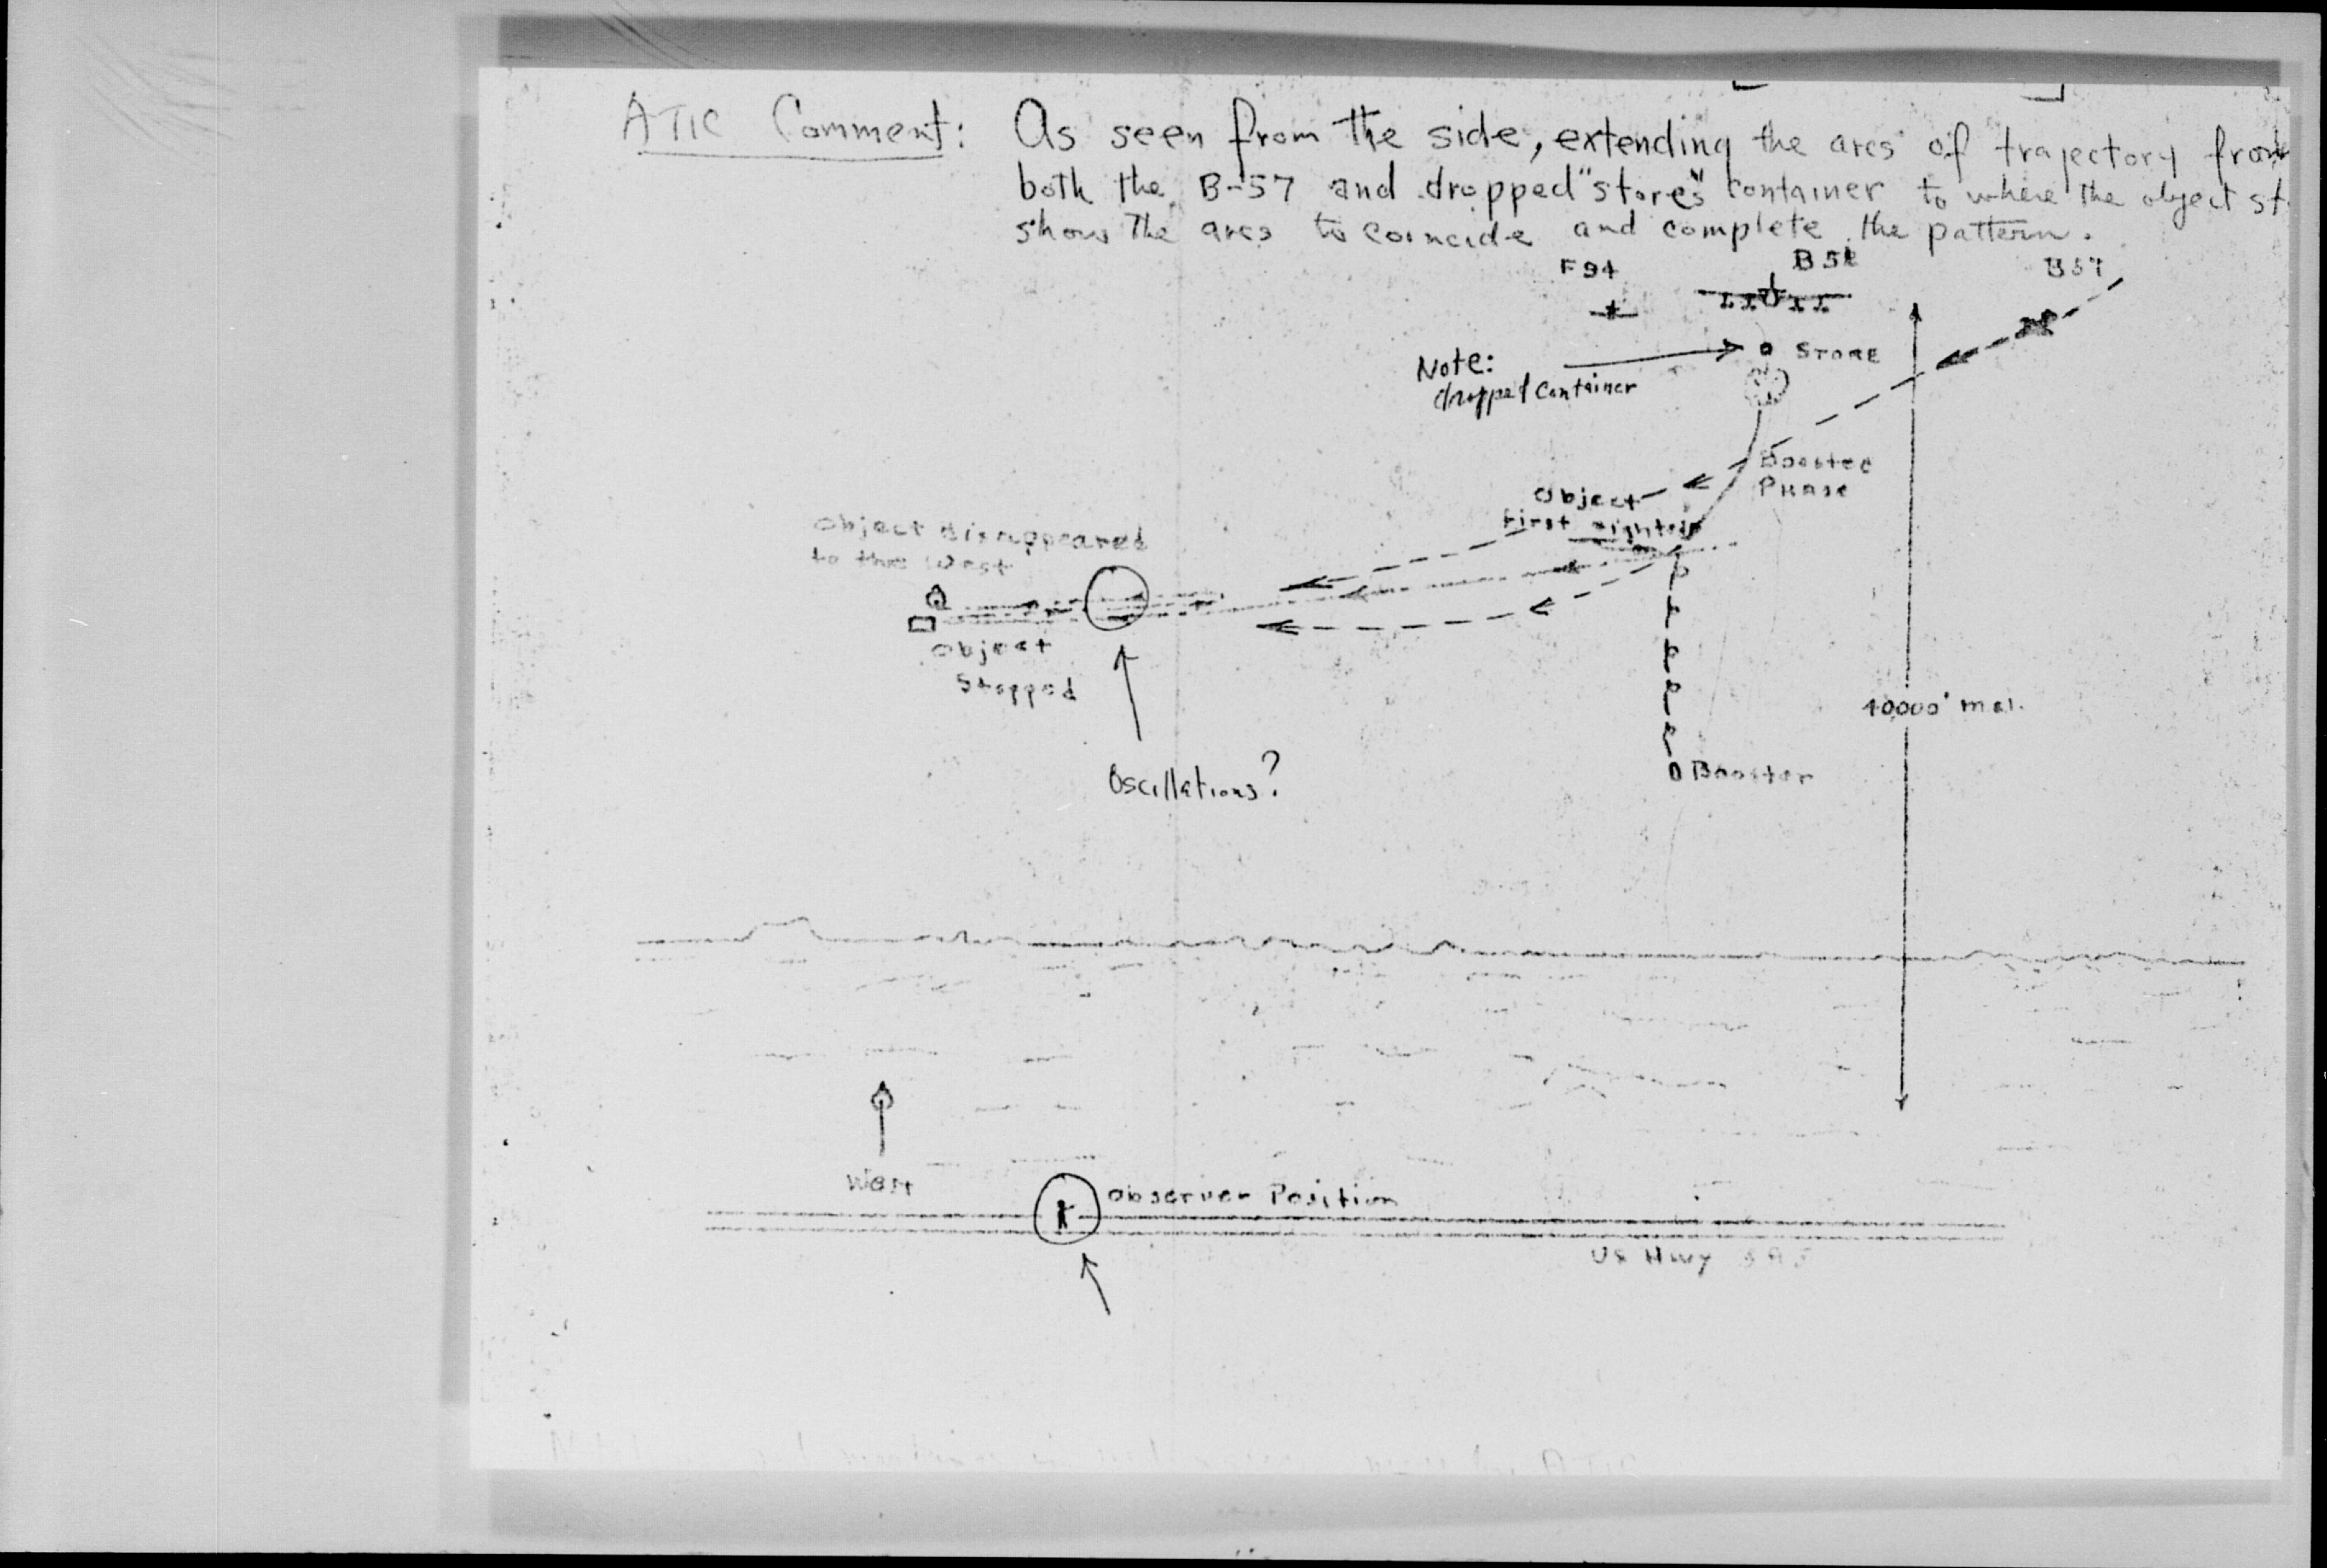 ATIC Comment: As seen from the side, extending the arcs of trajectory from
both the B-57 and dropped "stores" container to where the object st
shows the arcs to coincide and complete the pattern.
F94
B52
B57
Note:
dropped container
STORE
Booster
Phase
Object
First sighted
Object disappeared
to the West
Object
Stopped
Oscillations?
40000' msl.
Booster
West
Observer Position
US Hwy